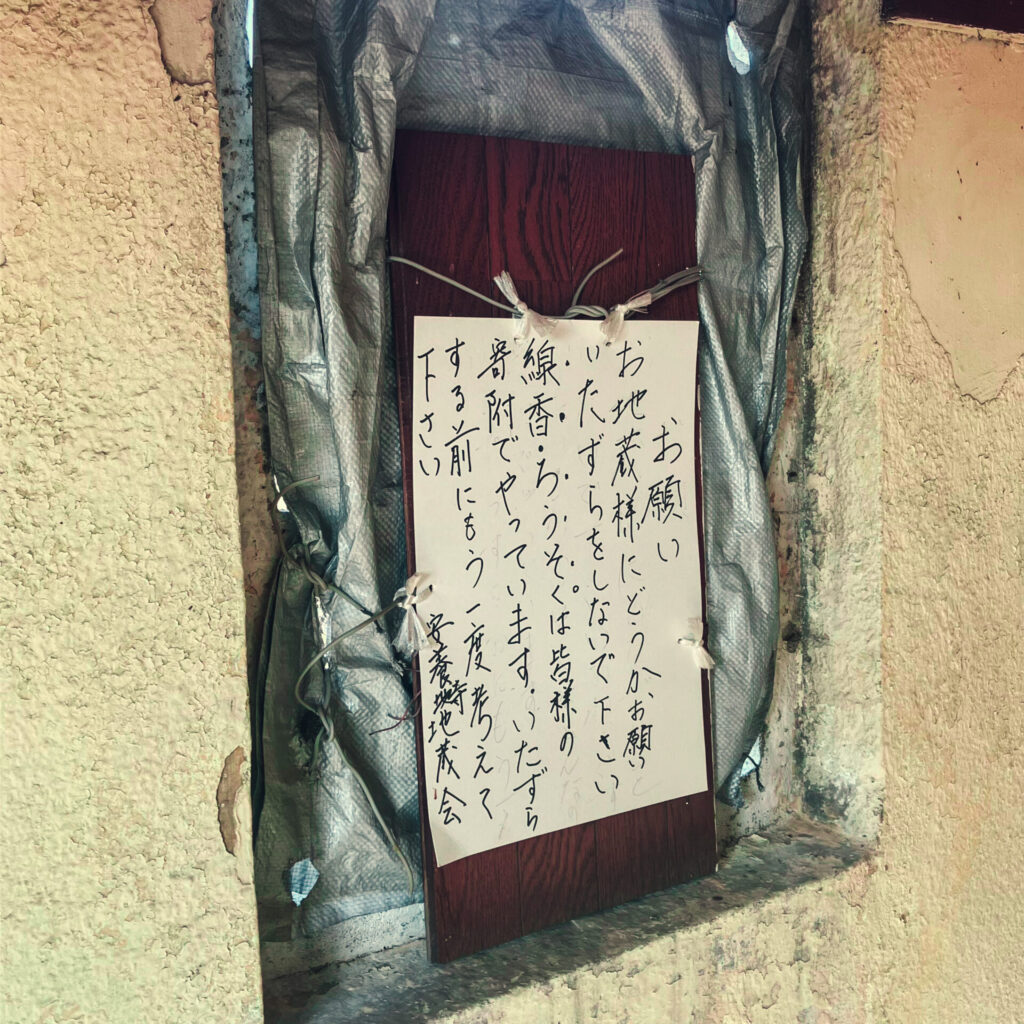 お願い
お地蔵様にどうかお願い
いたずらをしないで下さい
線香・ろうそくは皆様の
寄附でやっています。いたずら
する前にもう一度考えて
下さい
安養寺地蔵会